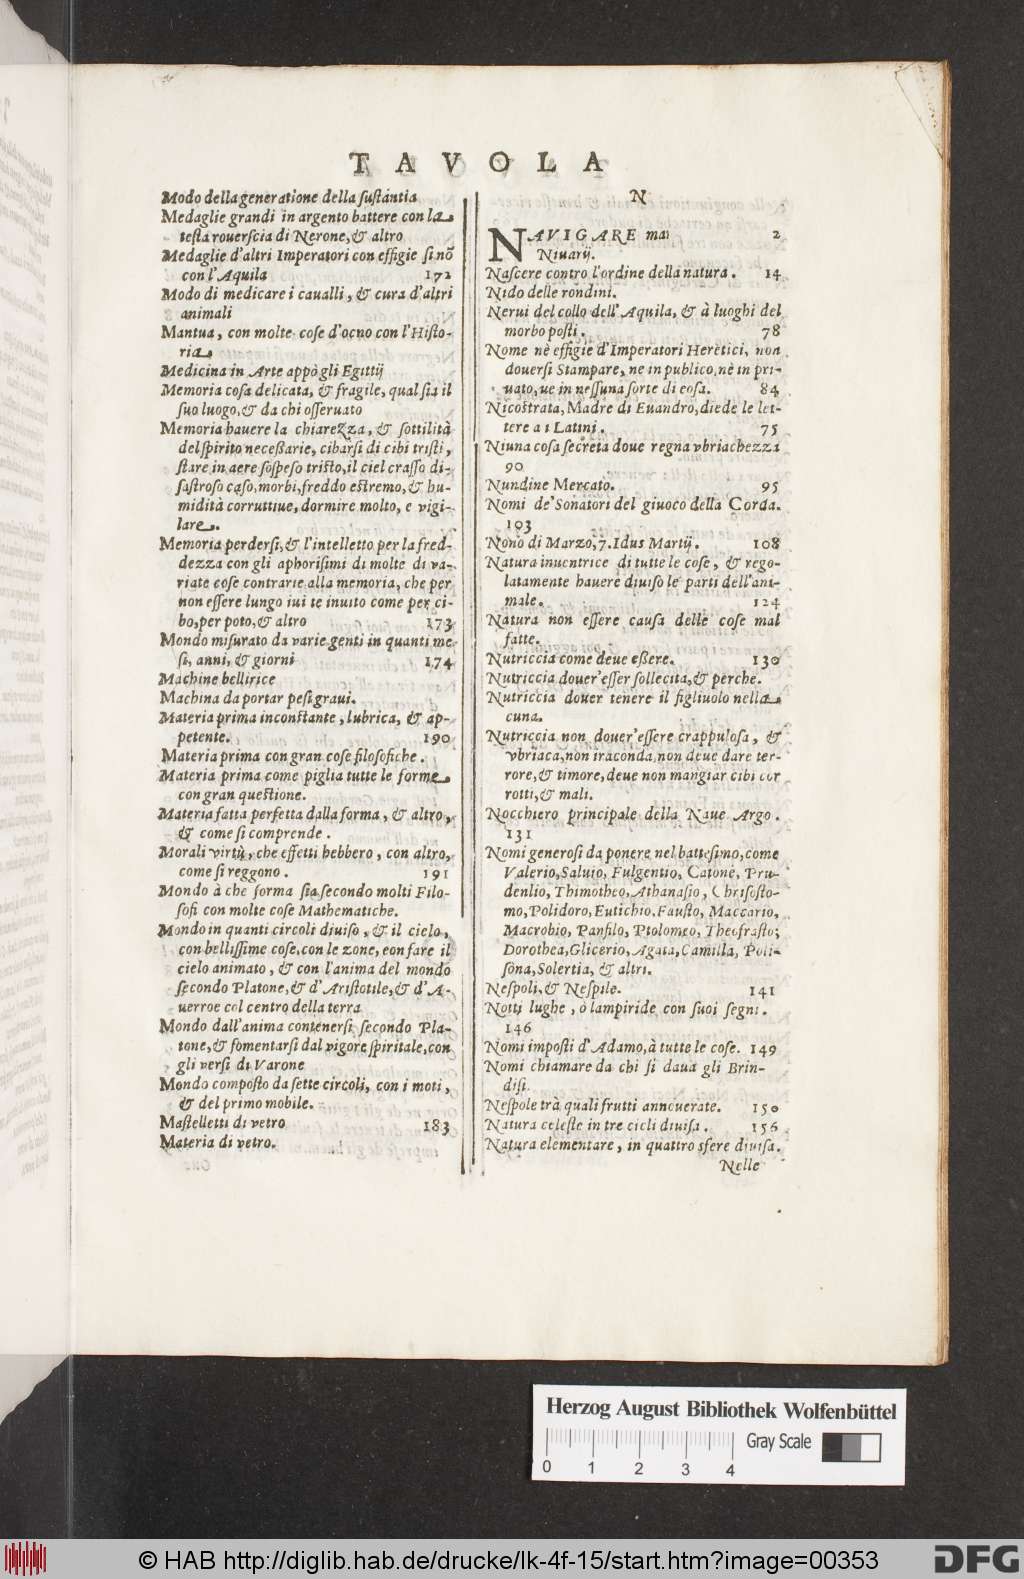 TAVOLA
Modo della generatione della sustantia
Medaglie grandi in argento battere con la
testa rouerscia di Nerone, & altro
Medaglie d'altri Imperatori con effigie sinõ
con l'Aquila 172
Modo di medicare i caualli, & cura d'altri
animali
Mantua, con molte cose d'ocno con l'Histo-
ria
Medicina in Arte appò gli Egittij
Memoria cosa delicata, & fragile, qual sia il
suo luogo, & da chi osseruato
Memoria hauere la chiarezza, & sottilità
del spirito necessarie, cibarsi di cibi tristi,
stare in aere sospeso tristo, il ciel crasso di-
sastroso caso, morbi, freddo estremo, & hu-
midità corruttiue, dormire molto, e vigi-
lare.
Memoria perdersi, & l'intelletto per la fred-
dezza con gli aphorisimi di molte di va-
riate cose contrarie alla memoria, che per
non essere lungo iui te inuito come per ci-
bo, per poto, & altro 173
Mondo misurato da varie genti in quanti me
si, anni, & giorni 174
Machine bellirice
Machina da portar pesi graui.
Materia prima inconstante, lubrica, & ap-
petente. 190
Materia prima con gran cose filosofiche.
Materia prima come piglia tutte le forme
con gran questione.
Materia fatta perfetta dalla forma, & altro,
& come si comprende.
Morali virtù, che effetti hebbero, con altro,
come si reggono. 191
Mondo à che forma sia secondo molti Filo-
sofi con molte cose Mathematiche.
Mondo in quanti circoli diuiso, & il cielo,
con bellissime cose, con le zone, eon fare il
cielo animato, & con l'anima del mondo
secondo Platone, & d'Aristotile, & d'A-
uerroe col centro della terra
Mondo dall'anima contenersi secondo Pla-
tone, & fomentarsi dal vigore spiritale, con
gli versi di Varone
Mondo composto da sette circoli, con i moti,
& del primo mobile.
Mastelletti di vetro 183
Materia di vetro.
N
NAVIGARE mai 2
Niuarij.
Nascere contro l'ordine della natura. 14
Nido delle rondini.
Nerui del collo dell'Aquila, & à luoghi del
morbo posti. 78
Nome nè effigie d'Imperatori Heretici, non
douersi Stampare, ne in publico, nè in pri-
uato, ue in nessuna sorte di eosa. 84
Nicostrata, Madre di Euandro, diede le let-
tere a i Latini. 75
Niuna cosa secreta doue regna vbriachezza
90
Nundine Mercato. 95
Nomi de' Sonatori del giuoco della Corda.
103
Nono di Marzo, 7. Idus Martij. 108
Natura inuentrice di tutte le cose, & rego-
latamente hauere diuiso le parti dell'ani-
male. 124
Natura non essere causa delle cose mal
fatte.
Nutriccia come deue essere. 130
Nutriccia douer'esser sollecita, & perche.
Nutriccia douer tenere il figliuolo nella
cuna.
Nutriccia non douer'essere crappulosa, &
vbriaca, non iraconda, non deue dare ter-
rore, & timore, deue non mangiar cibi cor
rotti, & mali.
Nocchiero principale della Naue Argo.
131
Nomi generosi da ponere nel battesimo, come
Valerio, Saluio, Fulgentio, Catone, Pru-
denlio, Thimotheo, Athanasio, Chrisosto-
mo, Polidoro, Eutichio, Fausto, Maccario,
Macrobio, Panfilo, Ptolomeo, Theofrasto;
Dorothea, Glicerio, Agata, Camilla, Poli-
sona, Solertia, & altri.
Nespoli, & Nespile. 141
Notti lughe, ò lampiride con suoi segni.
146
Nomi imposti d'Adamo, à tutte le cose. 149
Nomi chiamare da chi si daua gli Brin-
disi.
Nespole trà quali frutti annouerate. 150
Natura celeste in tre cieli diuisa. 156
Natura elementare, in quattro sfere diuisa.
Nelle
Herzog August Bibliothek Wolfenbüttel
Gray Scale
0 1 2 3 4
© HAB http://diglib.hab.de/drucke/lk-4f-15/start.htm?image=00353
DFG